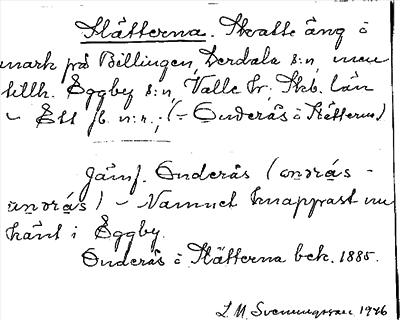 Slätterna. Skatte äng i
mark på Billingen, Derdala s:n, men
tillh. Eggby s:n, Valle hr, Skb. län
- Ett jb. n:r.; (= Onderås i Slätterna)
Jämf. Onderås
) - Namnet knappast nu
känt i Eggby.
Onderås i Slätterna bek. 1885.
L. M. Svenungsson 1946